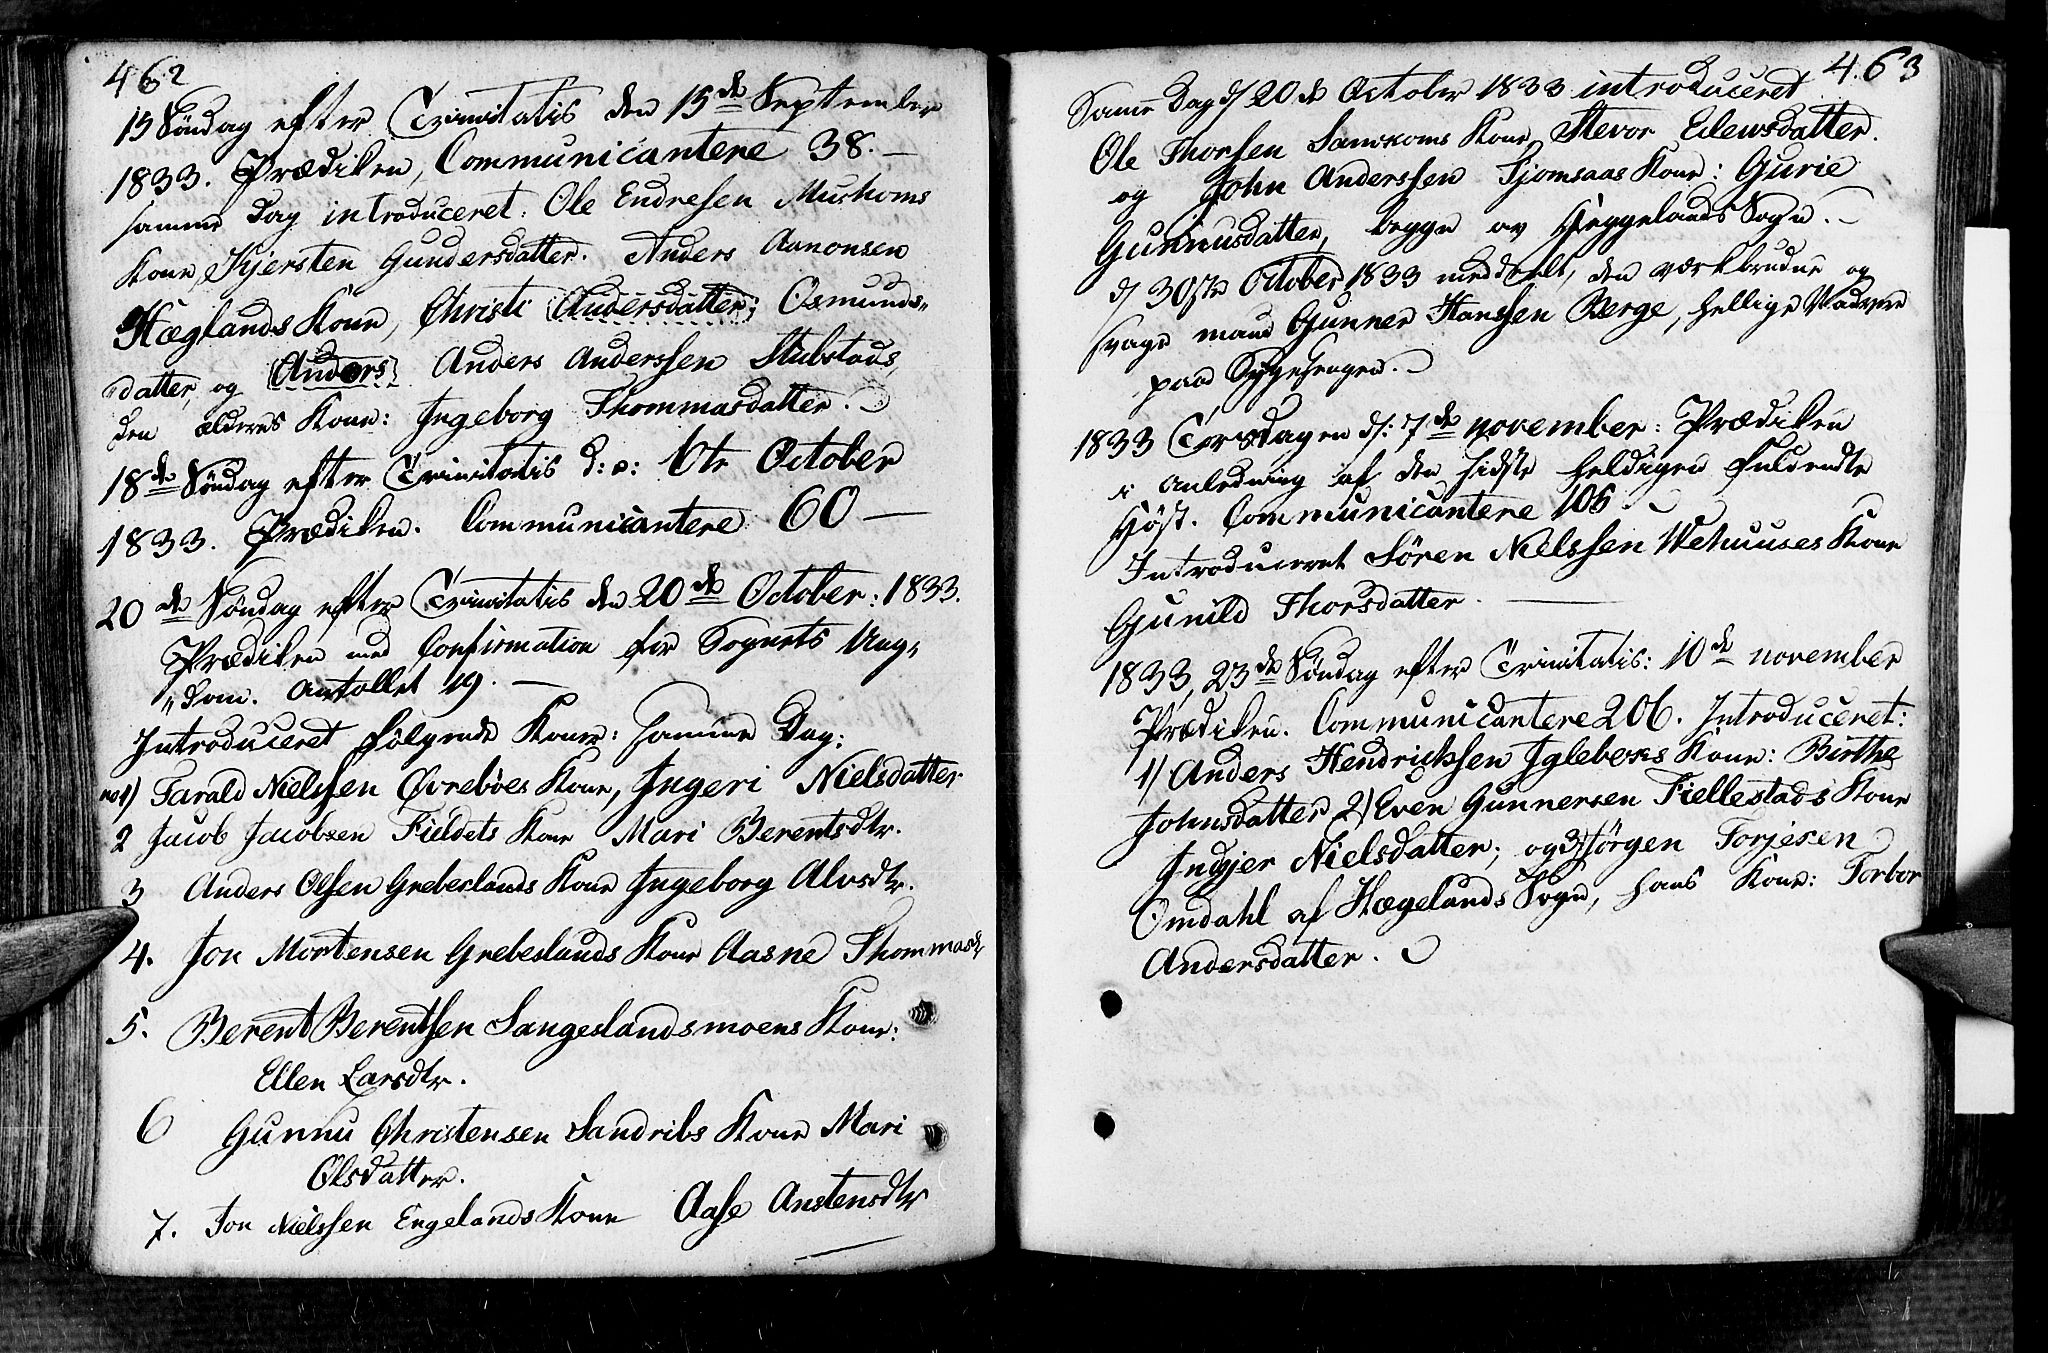 462
15 Søndag efter Trinitatis den 15de September
1833. Prædiken, Communicantere 38. —
samme Dag introduceret: Ole Endresen Muskoms
Kone, Kjersten Gundersdatter. Anders Aanonsen
Hæglands Kone, Christi Andersdatter; Osmunds„
„datter, og Anders Anders Anderssen Stubstads
den ældres Kone: Ingeborg Thommasdatter.
18de Søndag efter Trinitatis d: 6te October
1833. Prædiken. Communicantere 60 —
20de Søndag efter Trinitatis den 20de October: 1833.
Prædiken med Confirmation for Sognets Ung„
„dom. Antallet 19. —
Introduceret følgende Koner: samme Dag:
no 1) Tarald Nielssen Øvrebøes Kone, Ingeri Nielsdatter
2 Jacob Jacobsen Fieldets Kone Mari Berentsdtr.
3 Anders Olssen Grebeslands Kone Ingeborg Alvsdtr.
4. Jon Mortensen Grebeslands Kone Aasne Thommasd
5. Berent Berentssen Sangeslandsmoens Kone:
Ellen Larsdtr.
6 Gunnu Christensen Sandribs Kone Mari
Olsdatter.
7. Jon Nielssen Engelands Kone Aase Anstensdtr
463
Samme Dag d/ 20de October 1833 introduceret
Ole Thorssen Kone Stevor
og John Anderssen Tjomsaas Kone: Gurie
Gunnusdatter, begge av Heggelands Sogn. —
d/ 30te October 1833 meddeelt, den værkbrudne og
svage mand Gunner Hanssen Berge, hellige Nadvere
paa Sygesengen.
1833 Torsdagen d/: 7de november: Prædiken
i anledning af den sidste heldigen fuldendte
Høst. Communicantere 106
Introduceret Søren Nielssen Wehuuses Kone
Gunild Thorsdatter. —
1833, 23de Søndag efter Trinitatis: 10de november
Prædiken. Communicantere 206. Introduceret:
1) Anders Hendrichsen Iglebæks Kone: Birthe
Johnsdatter 2) Even Gunnersen Fiellestads Kone
Indjer Nielsdatter; og 3) Jørgen Torjesen
Omdahl af Hægelands Sogn, hans Kone: Torbor
Andersdatter.